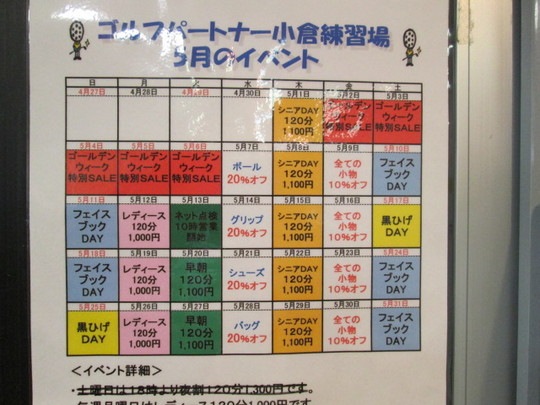 ゴルフパートナー小倉練習場
5月のイベント
日 月 火 水 木 金 土
4月27日 4月28日 4月29日 4月30日 5月1日 5月2日 5月3日
シニアDAY
120分
1,100円
ゴールデン
ウィーク
特別SALE
ゴールデン
ウィーク
特別SALE
5月4日 5月5日 5月6日 5月7日 5月8日 5月9日 5月10日
ゴールデン
ウィーク
特別SALE
ゴールデン
ウィーク
特別SALE
ゴールデン
ウィーク
特別SALE
ボール
20%オフ
シニアDAY
120分
1,100円
全ての
小物
10%オフ
フェイス
ブック
DAY
5月11日 5月12日 5月13日 5月14日 5月15日 5月16日 5月17日
フェイス
ブック
DAY
レディース
120分
1,000円
ネット点検
10時営業
開始
グリップ
20%オフ
シニアDAY
120分
1,100円
全ての
小物
10%オフ
黒ひげ
DAY
5月18日 5月19日 5月20日 5月21日 5月22日 5月23日 5月24日
フェイス
ブック
DAY
レディース
120分
1,000円
早朝
120分
1,100円
シューズ
20%オフ
シニアDAY
120分
1,100円
全ての
小物
10%オフ
フェイス
ブック
DAY
5月25日 5月26日 5月27日 5月28日 5月29日 5月30日 5月31日
黒ひげ
DAY
レディース
120分
1,000円
早朝
120分
1,100円
バッグ
20%オフ
シニアDAY
120分
1,100円
全ての
小物
10%オフ
フェイス
ブック
DAY
＜イベント詳細＞
・土曜日は18時より夜割120分1,300円です。
毎週月曜日はレディース120分1,000円です